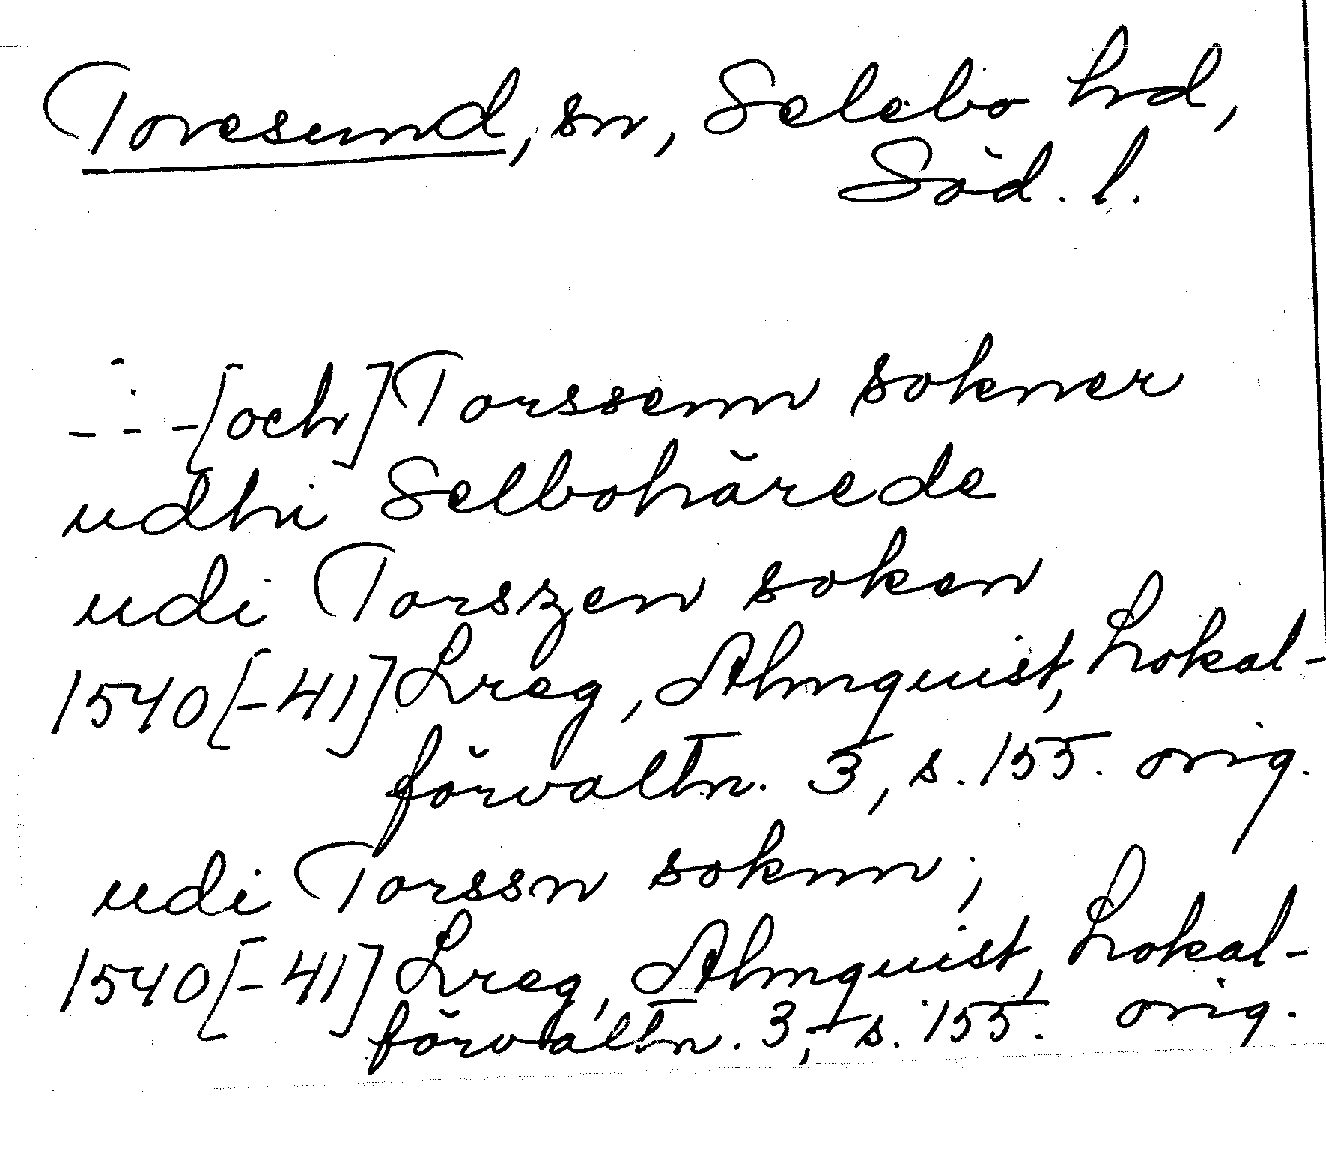 Toresund, sn, Selebo hd,
Söd. l.
- - - [och] Torssenn sokner
udhi Selbohärede
udi Torszen soken
1540[-41] Lreg, Almquist, Lokal-
förvaltn. 3, s. 155. orig.
udi Torssn soknn;
1540[-41] Lreg, Almquist, Lokal-
förvaltn. 3, s. 155. orig.